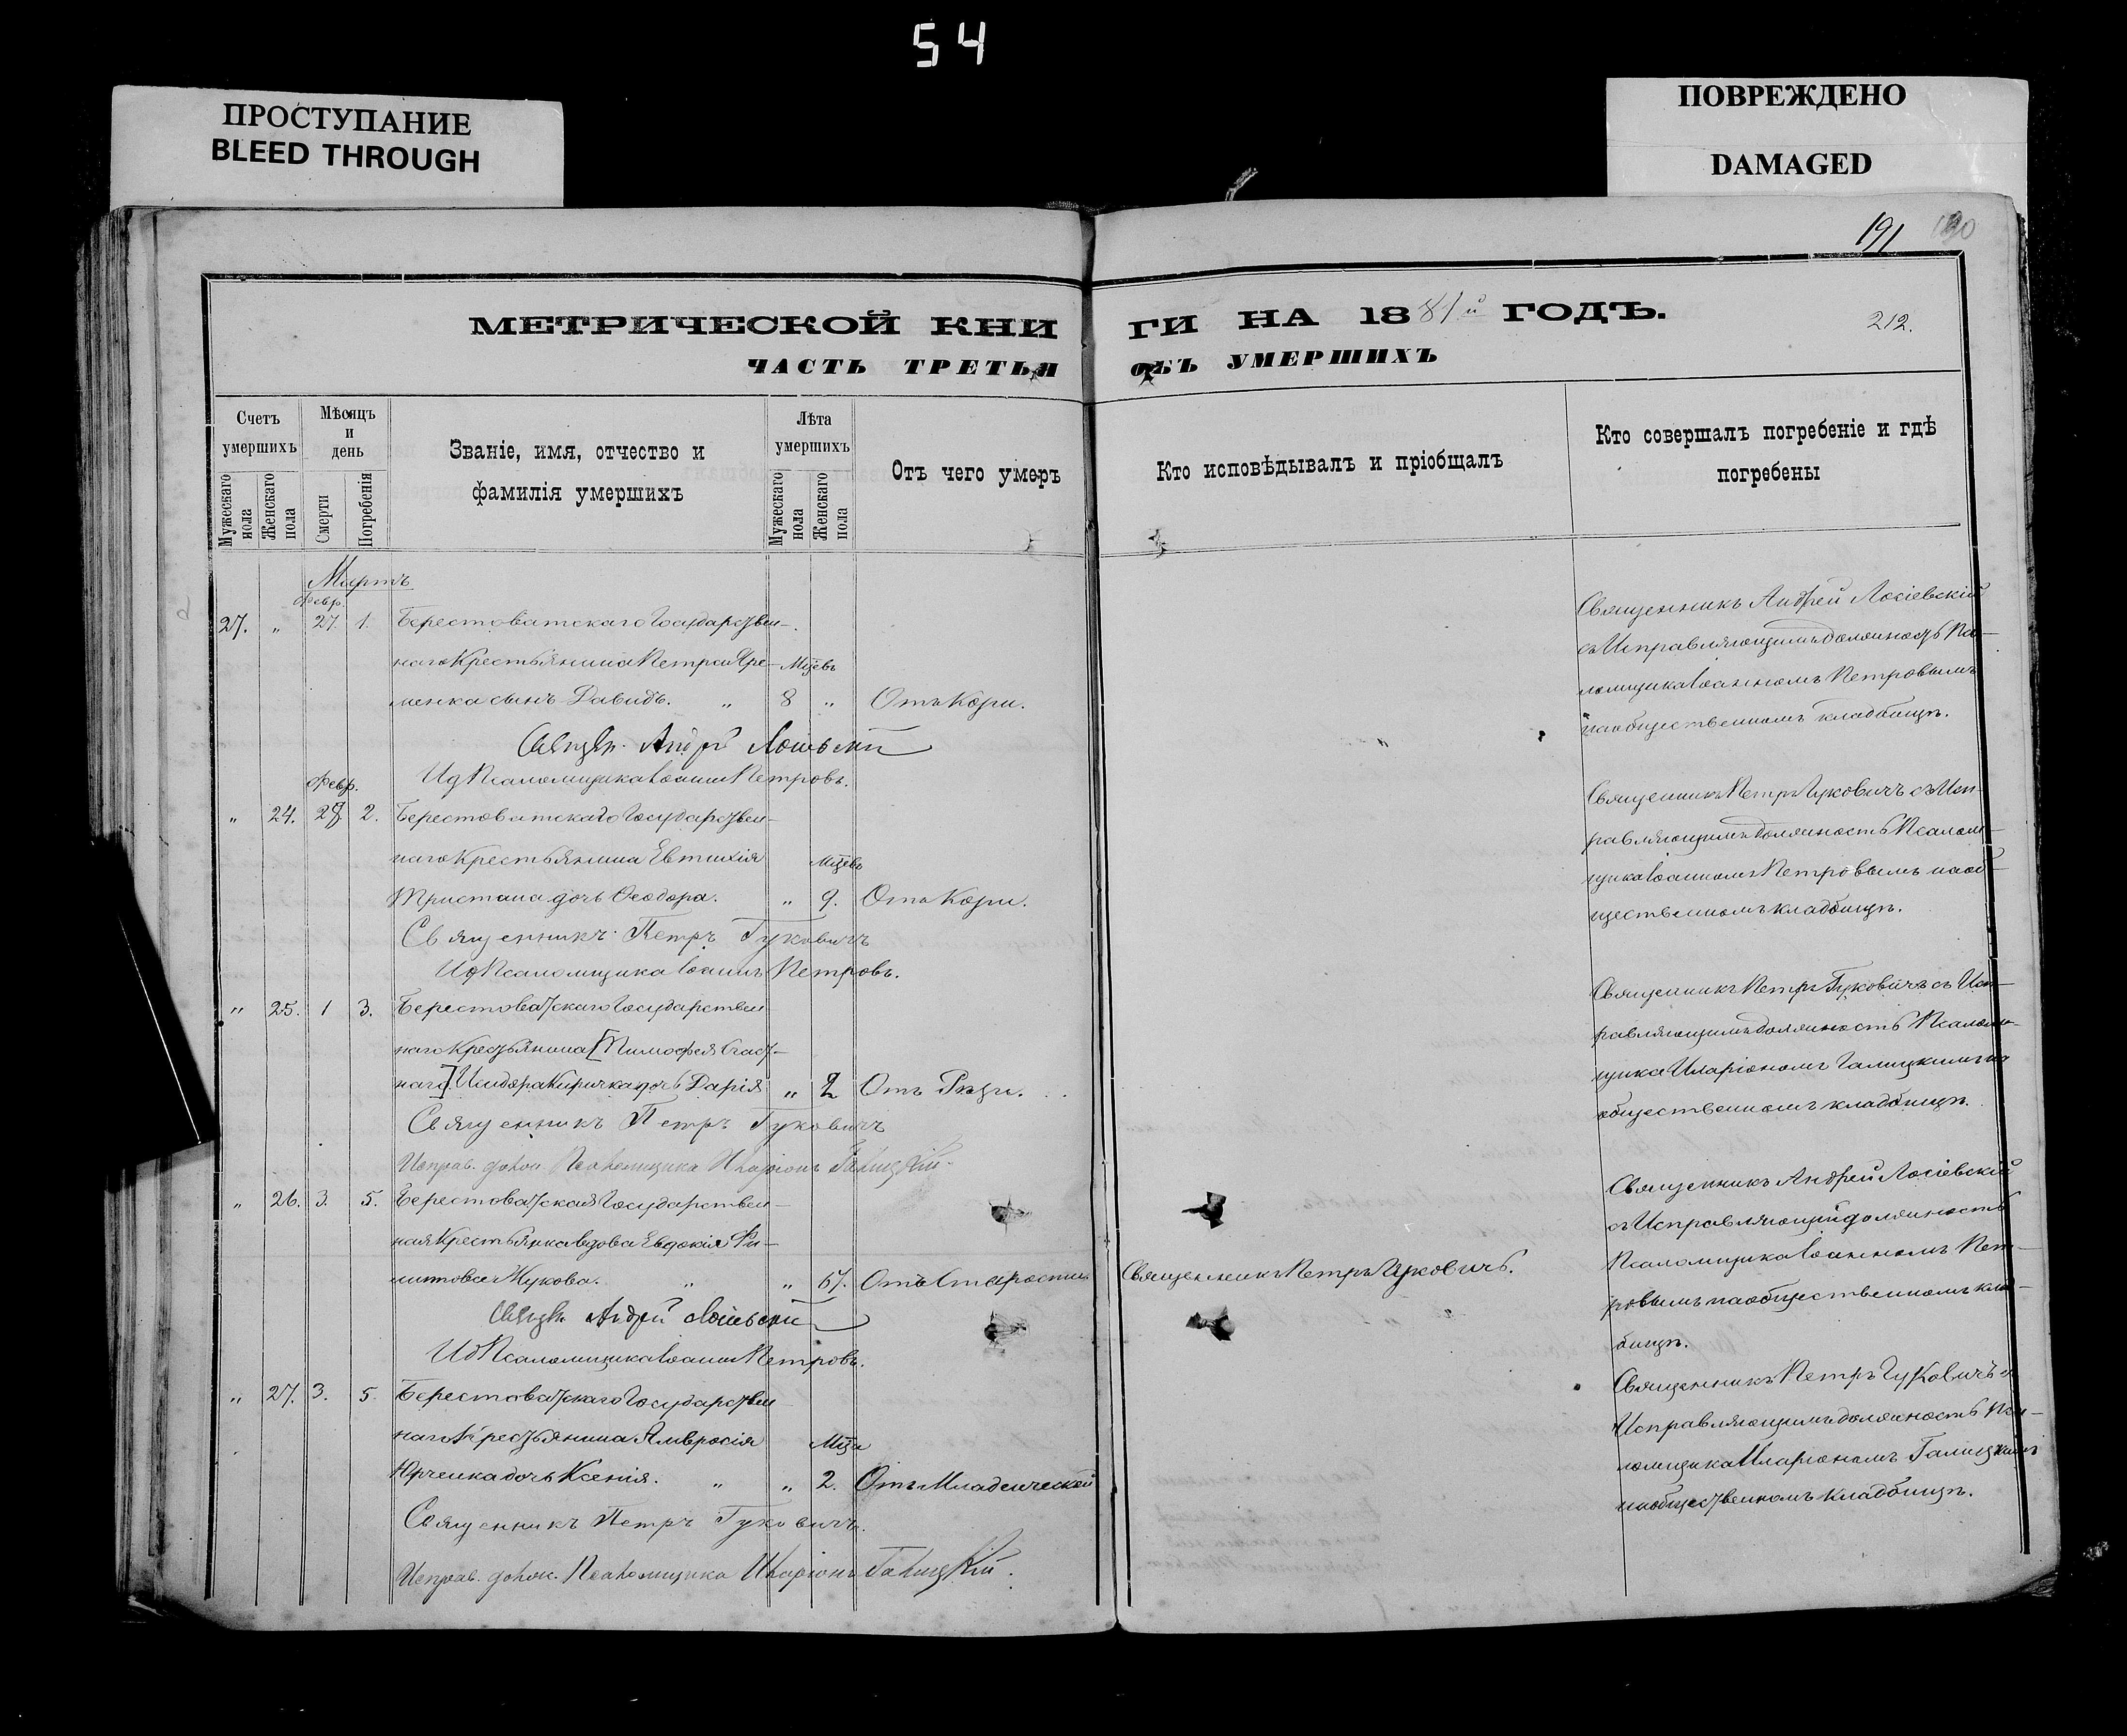 54
ПРОСТУПАНИЕ
BLEED THROUGH
ПОВРЕЖДЕНО
DAMAGED
191 190
МЕТРИЧЕСКОЙ КНИ ГИ НА 1881й ГОДЪ.
212.
ЧАСТЬ ТРЕТЬЯ ОБЪ УМЕРШИХЪ
Счетъ умершихъ
Мужескаго пола
Женскаго пола
Мѣсяцъ и день
Смерти
Погребенія
Званіе, имя, отчество и
фамилія умершихъ
Лѣта умершихъ
Мужескаго пола
Женскаго пола
Отъ чего умеръ
Кто исповѣдывалъ и пріобщалъ
Кто совершалъ погребеніе и гдѣ
погребены
Мартъ
Февр.
27. „ 27 1. Берестоватскаго Государствен-
наго Крестьянина Петра Яре- Мцевъ
менка сынъ Давидъ. „ 8 „ Отъ Кори.
Священ. Андрей Лосіевскій
Ид Псаломщика Іоаннъ Петровъ.
Священникъ Андрей Лосіевскій
съ Исправляющимъ должность Пса-
ломщика Іоанномъ Петровымъ
на общественномъ кладбищѣ.
Февр.
„ 24. 28 2. Берестоватскаго Государствен-
наго Крестьянина Евтихія Мцевъ
Тристана дочь Ѳеодора. „ 9. Отъ Кори.
Священникъ Петръ Гуковичъ
Ид Псаломщика Іоаннъ Петровъ.
Священникъ Петръ Гуковичъ съ Исп-
равляющимъ должность Псалом-
щика Іоанномъ Петровымъ на об-
щественномъ кладбищѣ.
„ 25. 1 3. Берестоватскаго Государствен
наго Крестьянина [Тимофея
наго] Исидора Киричка дочь Дарія „ 2 Отъ
Священникъ Петръ Гуковичъ
Исправ. долж. Псаломщика Иларіонъ Галицкій.
Священникъ Петръ Гуковичъ съ Исп-
равляющимъ должность Псалом-
щика Иларіономъ Галицкимъ на
общественномъ кладбищѣ.
„ 26. 3. 5. Берестоватская Государствен-
ная Крестьянка Вдова Евдокія Фи-
липова Жукова. „ „ 67. Отъ Старости Священникъ Петръ Гуковичъ.
Священ. Андрей Лосіевскій
Ид Псаломщика Іоаннъ Петровъ.
Священникъ Андрей Лосіевскій
съ Исправляющій должность
Псаломщика Іоанномъ Пет-
ровымъ на общественномъ клад-
бищѣ.
„ 27. 3. 5. Берестоватскаго Государствен
наго Крестьянина Амвросія Мца
Юрченка дочь Ксенія. „ „ 2. Отъ Младенческой
Священникъ Петръ Гуковичъ.
Исправ. долж. Псаломщика Иларіонъ Галицкій.
Священникъ Петръ Гуковичъ съ
Исправляющимъ должность Пса-
ломщика Иларіономъ Галицкимъ
на общественномъ кладбищѣ.